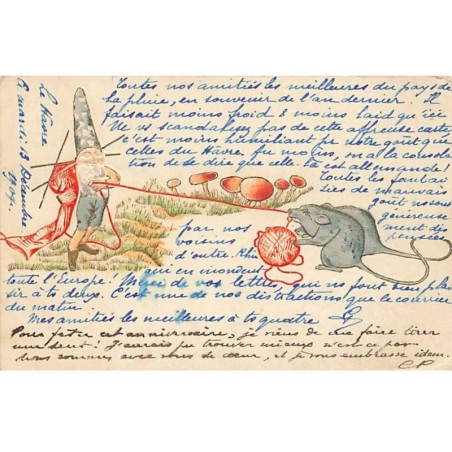 Le Hâvre
Ce mardi 13 Décembre
1904.
Toutes nos amitiés les meilleures du pays de
la pluie, en souvenir de l'an dernier! Il
faisait moins froid & moins laid qu'ici
Ne vs scandalisez pas de cette affreuse carte,
c'est moins humiliant pr notre goût que
celles du Havre au moins, on a la consola
tion de se dire que celle là est allemande!
Toutes les fantai
sies de mauvais
goût nous
généreuse
ment dis
pensées
par nos
voisins
d'outre Rhin
qui en inondent
toute l'Europe! Merci de vos lettres, qui ns font bien plai
sir à ts deux. C'est une de nos distractions que le courrier
du matin.
Mes amitiés les meilleures à ts quatre
Pour fêter cet anniversaire, je viens de me faire tirer
une dent! J'aurais pu trouver mieux n'est ce pas
Nous sommes avec vous de cœur, et je vous embrasse idem.
CP